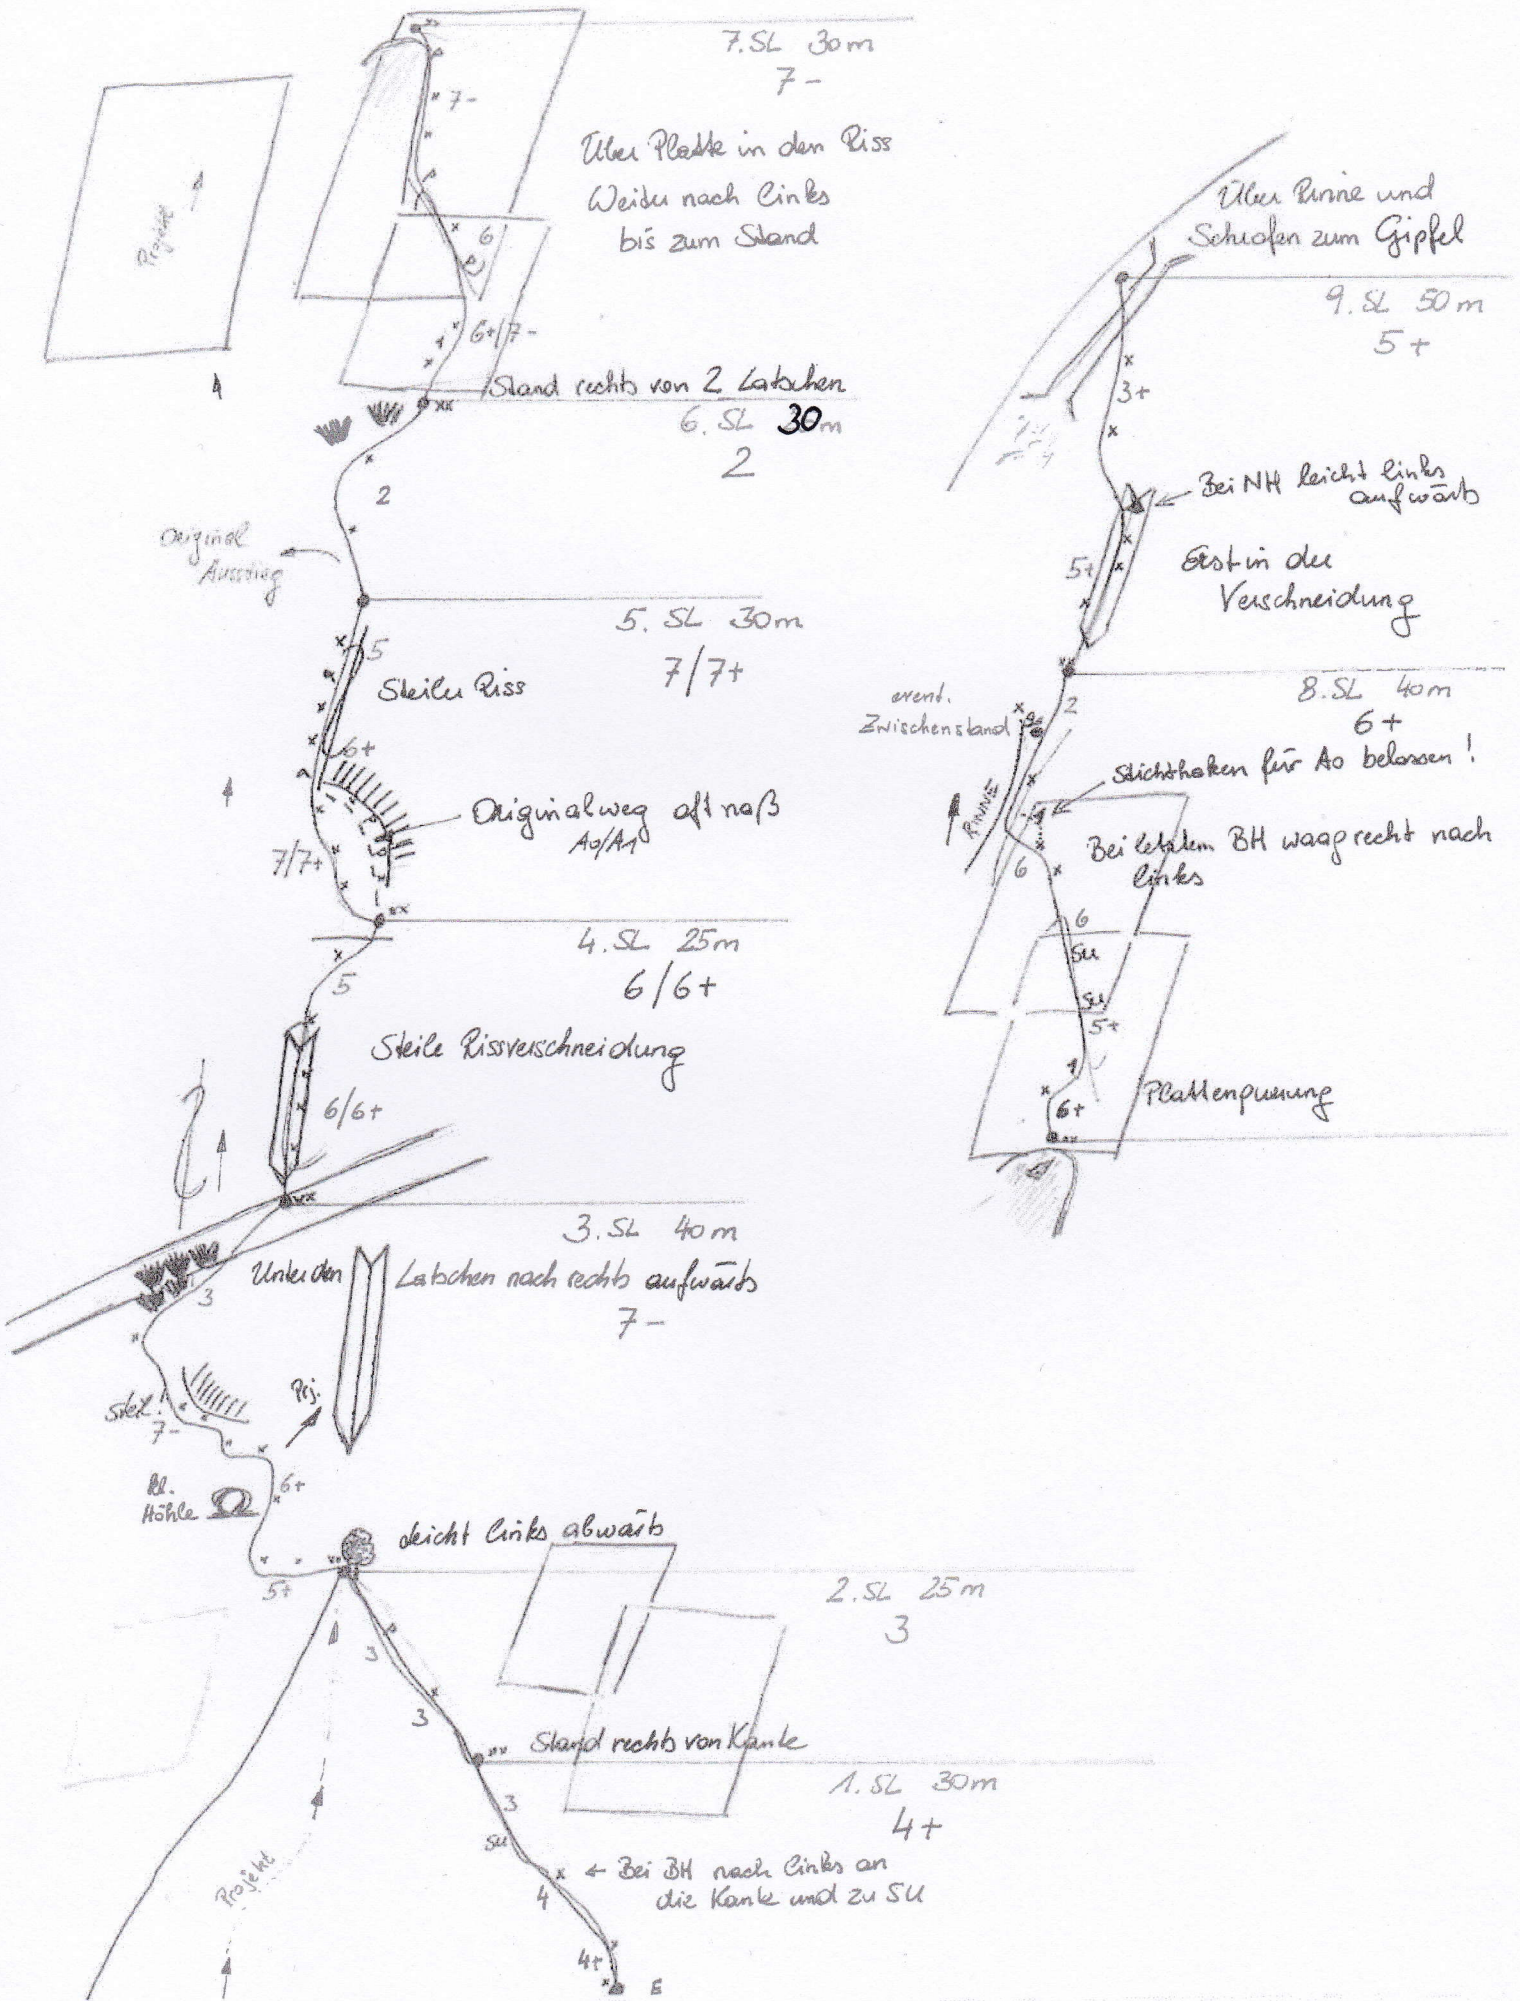 7.SL 30m
7-
7-
Über Platte in den Riss
Weiter nach links
bis zum Stand
Projekt
6
6+/7-
Stand rechts von 2 Latschen
6. SL 30m
2
2
Original
Ausstieg
5. SL 30m
7/7+
5
Steiler Riss
6+
Originalweg oft naß
A0/A1
7/7+
4. SL 25m
6/6+
5
Steile Rissverschneidung
6/6+
3. SL 40m
Unter den Latschen nach rechts aufwärts
7-
3
steil!
7-
Prj.
6+
kl.
Höhle
leicht links abwärts
5+
2. SL 25m
3
3
3
Stand rechts von Kante
1. SL 30m
4+
3
SU
← Bei BH nach links an
die Kante und zu SU
4
Projekt
4+
E
Über Rinne und
Schrofen zum Gipfel
9. SL 50m
5+
3+
Bei NH leicht links
aufwärts
5+
Erst in der
Verschneidung
8. SL 40m
6+
2
event.
Zwischenstand
Stichthaken für A0 belassen!
RINNE
Bei letztem BH waagrecht nach
links
6
6
SU
SU
5+
Plattenquerung
6+